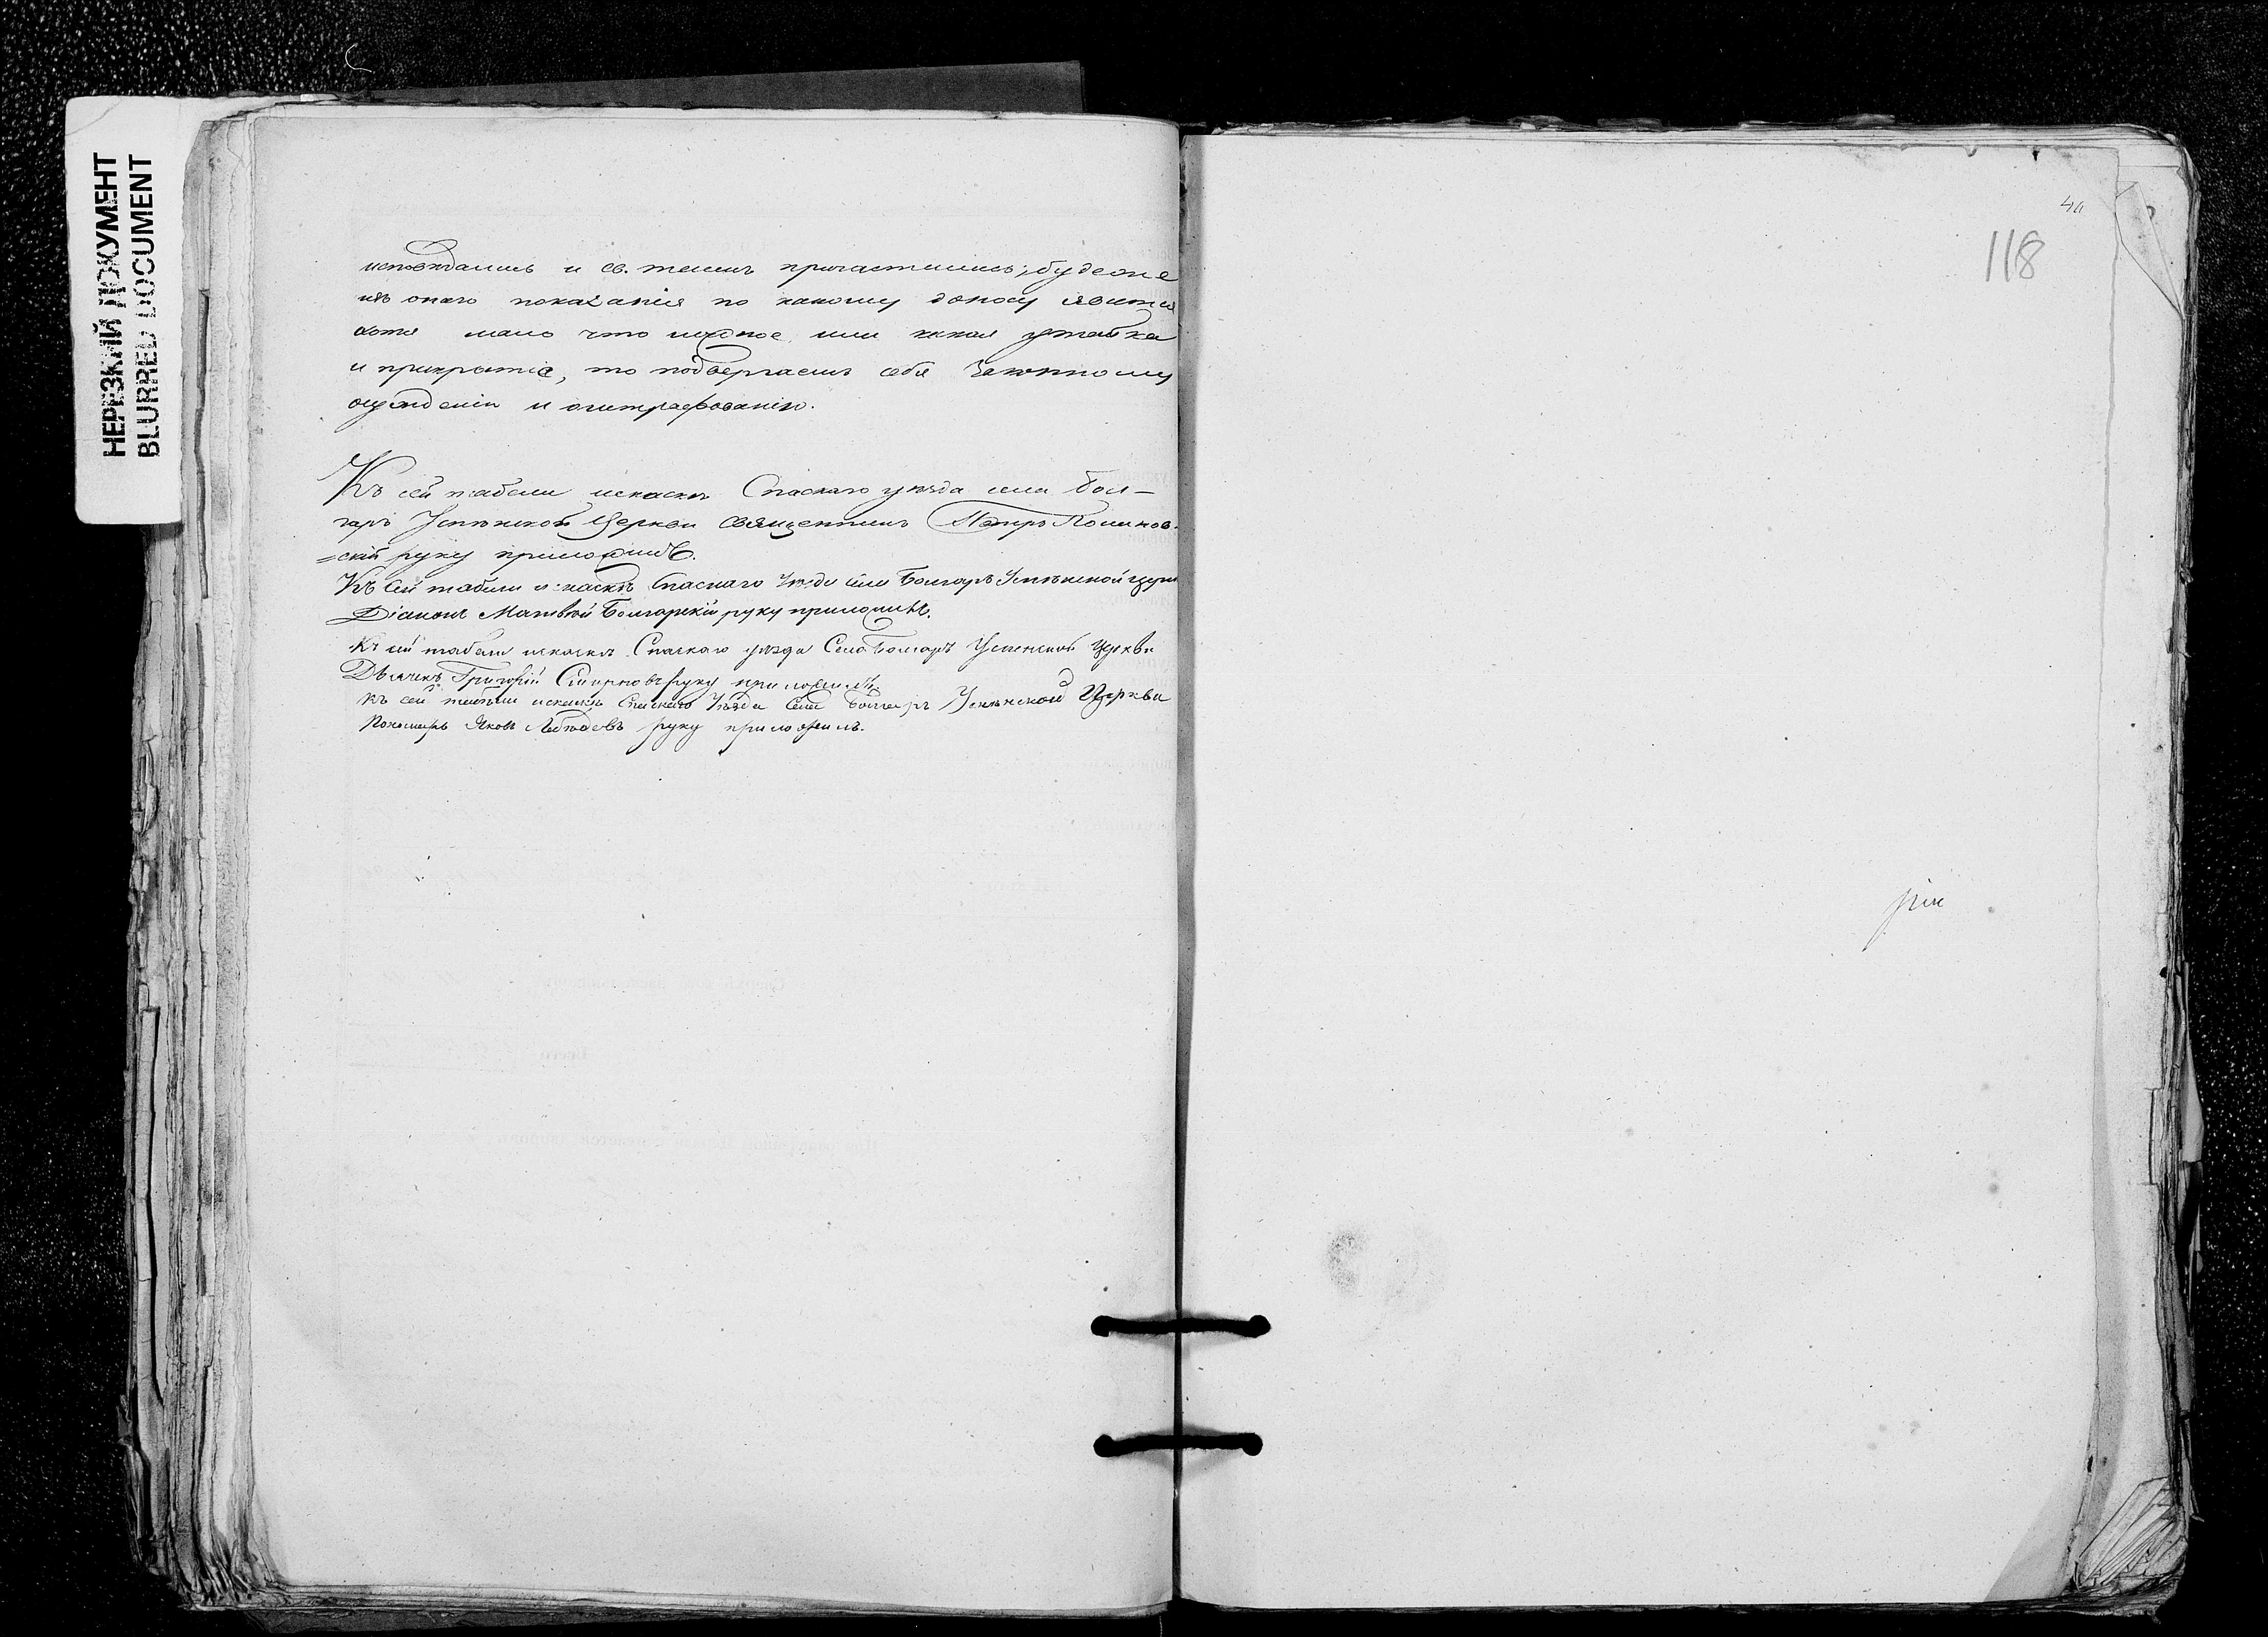 НЕРЕЗКИЙ ДОКУМЕНТ
BLURRED DOCUMENT
исповѣдались и св. таинъ причастились; буде же
изъ онаго показанія по какому доносу явится
хотя мало что ложное, или какая утайка
и прикрытіе, то подвергаемъ себя Законному
осужденію и оштрафованію.
Къ сей табели исказкѣ Спаскаго уѣзда села Бол-
гаръ Успѣнской Церкви Священникъ Петръ
скій руку приложилъ.
Къ сей табели исказкѣ Спаскаго Уѣзда села Болгаръ Успѣнской церк
Діаконъ Матвѣй Болгарскій руку приложилъ.
Къ сей табели исказкѣ Спаскаго уѣзда Села Болгаръ Успенской Церкви
Дьячекъ Григорій Смирновъ руку приложилъ
Къ сей табели исказкѣ Спаскаго Уѣзда Села Болгаръ Успѣнской Церкви
Пономарь Яковъ Лебедевъ руку приложилъ.
118